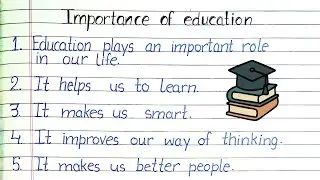 Importance of education
1. Education plays an important role
in our life.
2. It helps us to learn.
3. It makes us smart.
4. It improves our way of thinking.
5. It makes us better people.